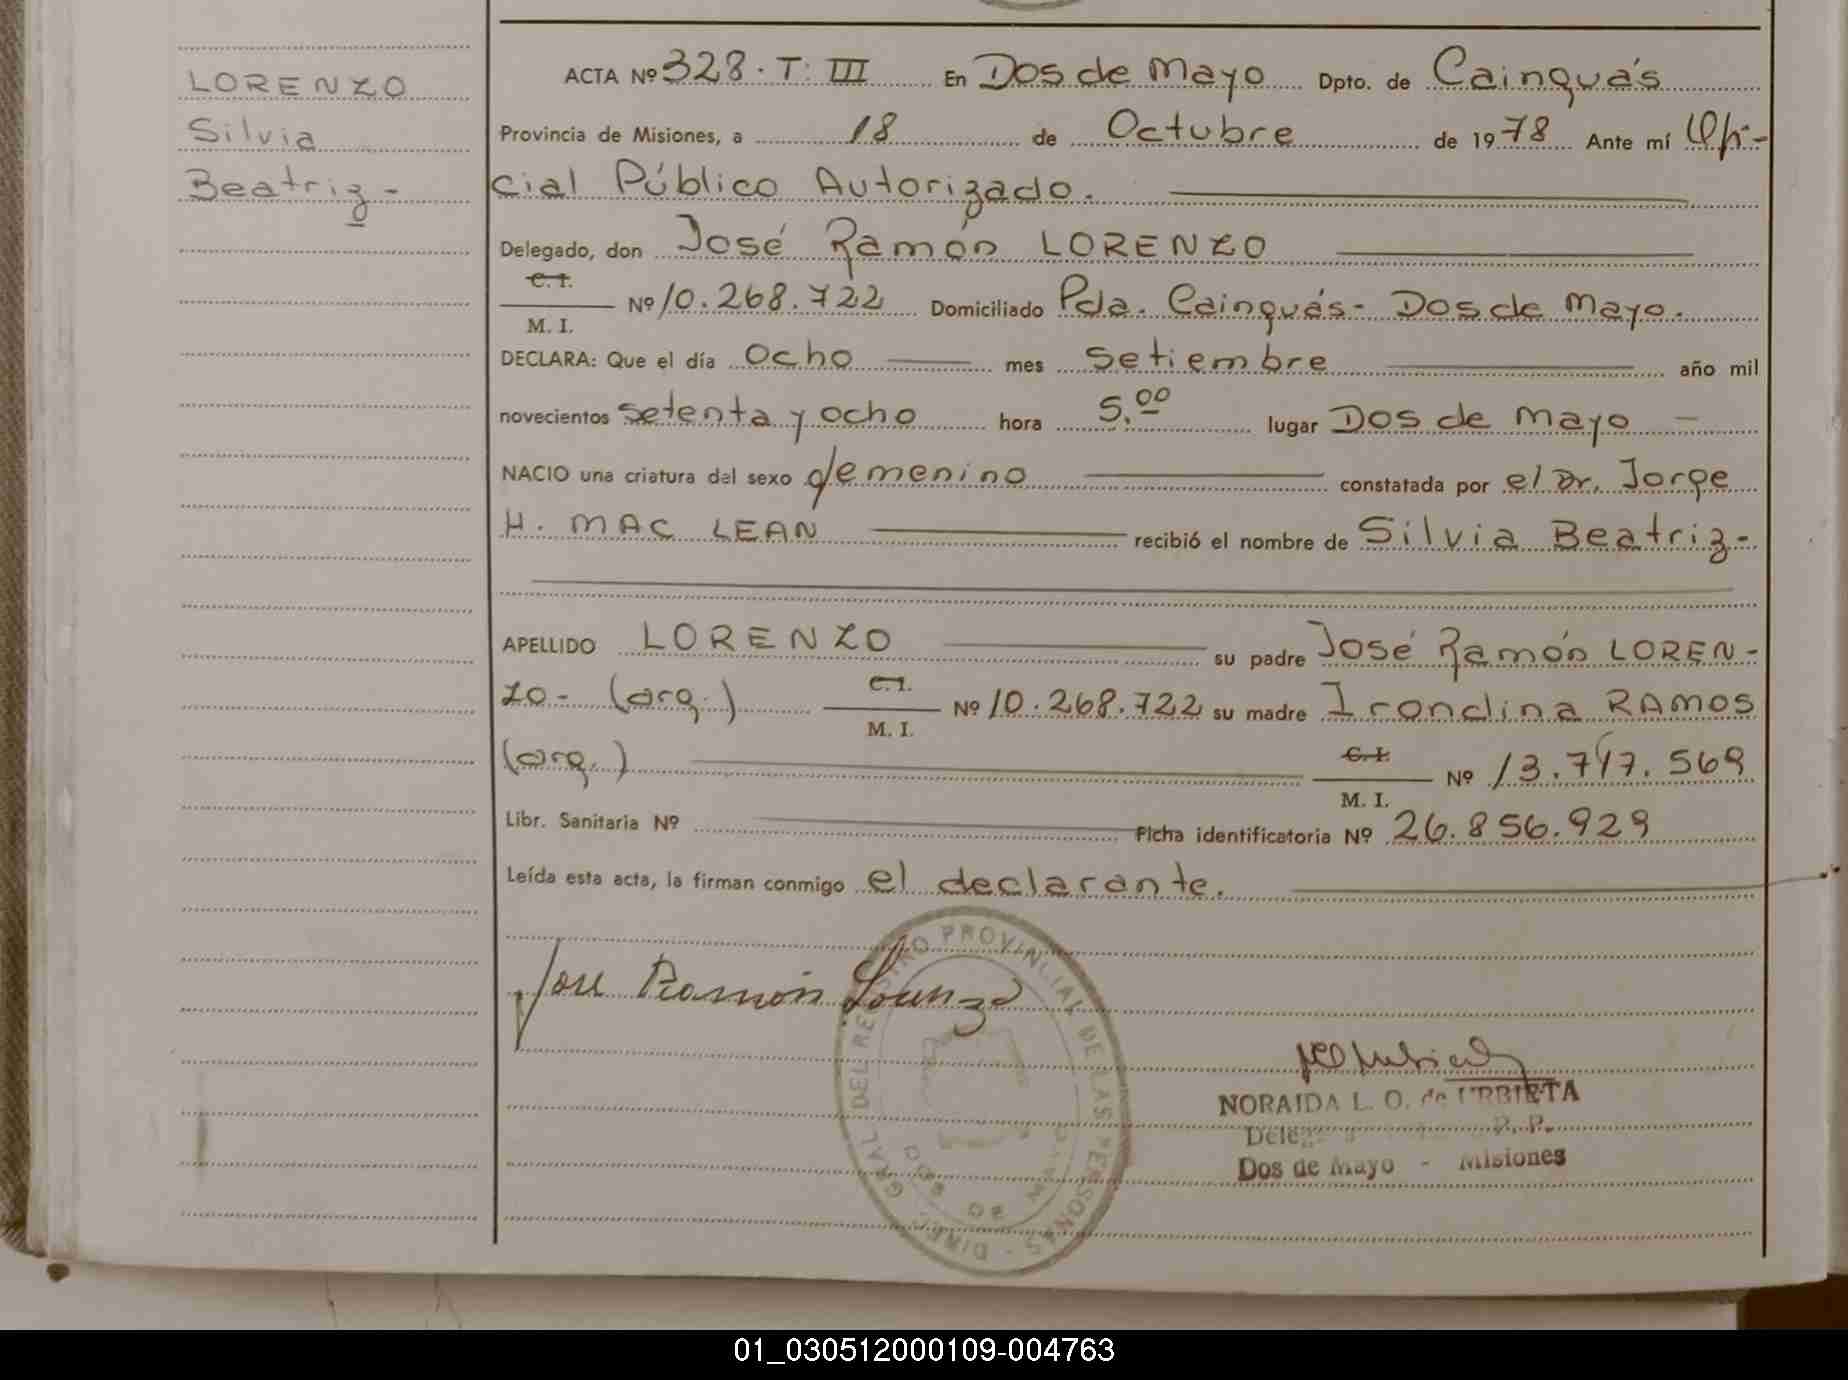 LORENZO
Silvia
Beatriz -
ACTA Nº 328. T: III En Dos de Mayo Dpto. de Cainguás
Provincia de Misiones, a 18 de Octubre de 1978 Ante mí Ofi-
cial Público Autorizado.
Delegado, don José Ramón LORENZO
C. I.
M. I. Nº 10.268.722 Domiciliado Pda. Cainguás - Dos de Mayo.
DECLARA: Que el día ocho mes setiembre año mil
novecientos setenta y ocho hora 5.00 lugar Dos de Mayo -
NACIO una criatura del sexo femenino constatada por el Dr. Jorge
H. MAC LEAN recibió el nombre de Silvia Beatriz -
APELLIDO LORENZO su padre José Ramón LOREN-
ZO - (arg.) C. I. M. I. Nº 10.268.722 su madre Irondina RAMOS
(arg.) C. I. M. I. Nº 13.747.569
Libr. Sanitaria Nº Ficha identificatoria Nº 26.856.929
Leída esta acta, la firman conmigo el declarante.
José Ramón Lorenzo
DIREC. GRAL DEL REGISTRO PROVINCIAL DE LAS PERSONAS -
DOS DE MAYO
NORAIDA L. O. de URBIETA
Dos de Mayo - Misiones
01_030512000109-004763